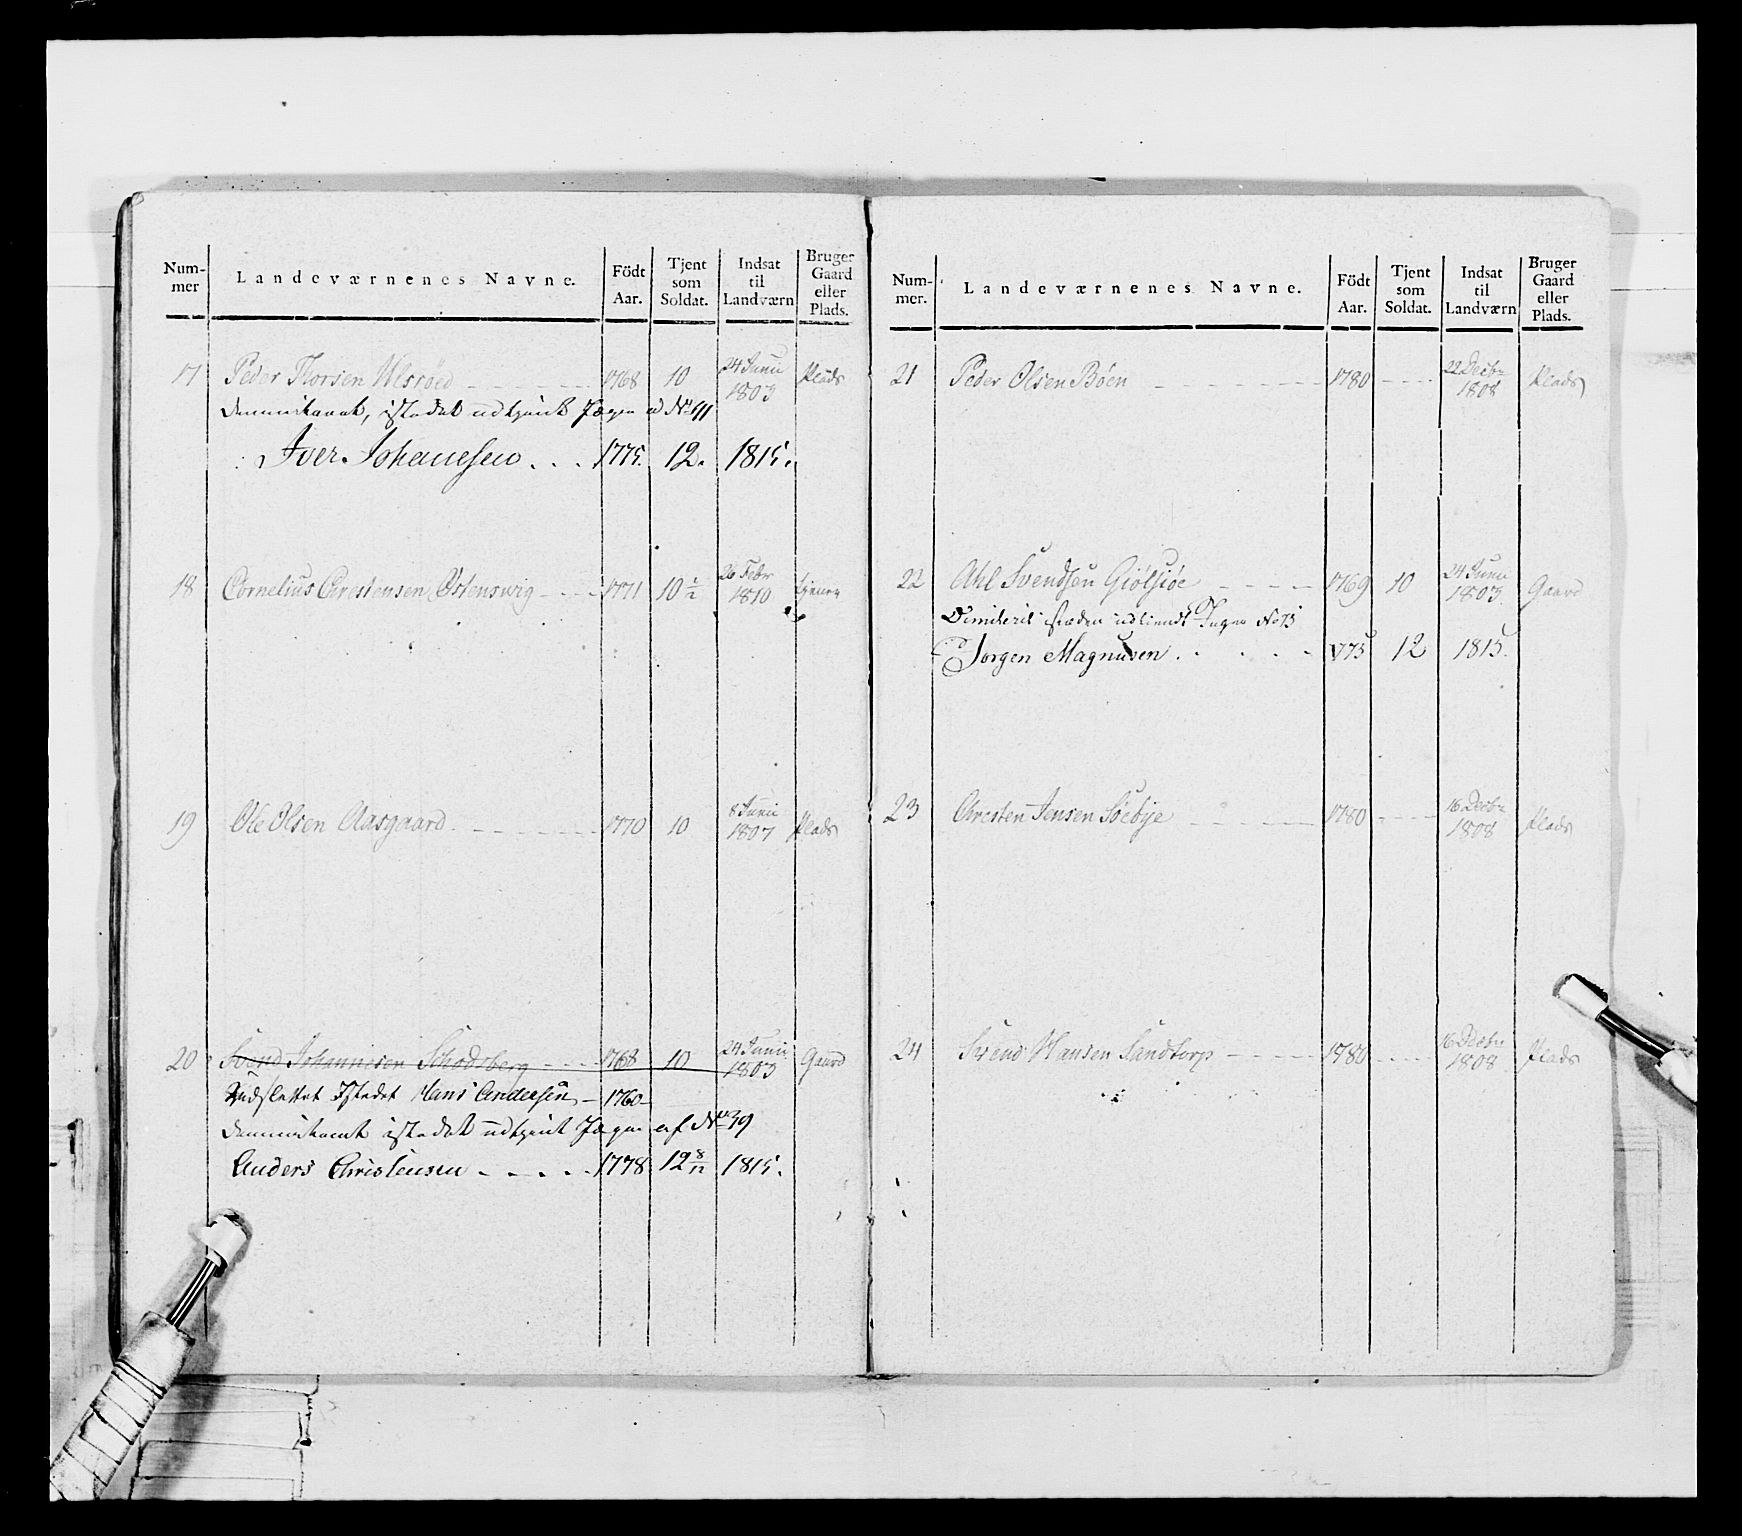 Num-
mer
Landeværnenes Navne.
Födt
Aar.
Tjent
som
Soldat.
Indsat
til
Landværn
Bruger
Gaard
eller
Plads.
17 Peder Thorsen Ulsröed 1768 10 24 Junii 1803 Plads
istedet udtjent Jæger No
Iver Johanesen 1775. 12. 1815.
18 Cornelius Chrestensen Östenswig 1771 10 1/2 26 Febr 1810 tjener
19 Ole Olsen Aasgaard 1770 10 8 Junii 1807 Plads
20 Svend Johannesen Schodsberg 1768 10 24 Junii 1803 Gaard
Udslettet Istedet Hans Andersen 1760
istedet udtjent Jæger af No 39
Anders Christensen 1778 12 8/12 1815.
Num-
mer.
Landeværnenes Navne.
Födt
Aar.
Tjent
som
Soldat.
Indsat
til
Landværn
Bruger
Gaard
eller
Plads.
21 Peder Olsen Böen 1780 22 Decbr 1808 Plads
22 Ahl Svendsen Giölsiöe 1769 10 24 Junii 1803 Gaard
Dimiterit istæden udtiendt Jæger No 73
Jorgen Magnusen 1775 12 1815.
23 Chresten Jensen Söebye 1780 16 Decbr 1808 Plads
24 Svend Hansen Sandtorp 1780 16 Decbr 1808 Plads